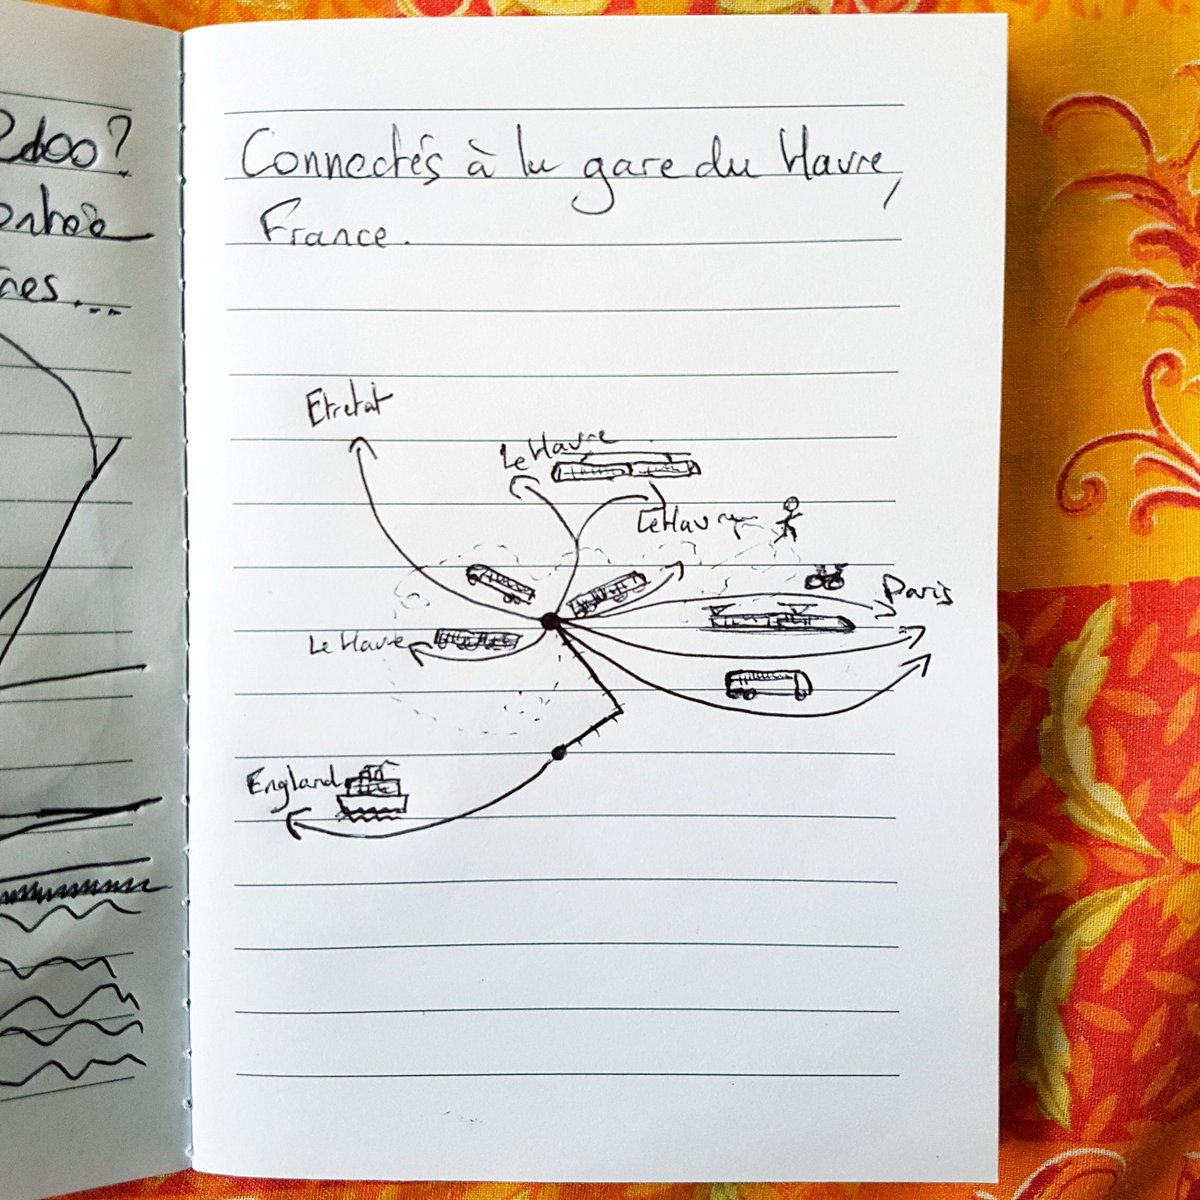 Connectés à la gare du Havre,
France.
Etretat
Le Havre
Le Havre
Paris
Le Havre
England